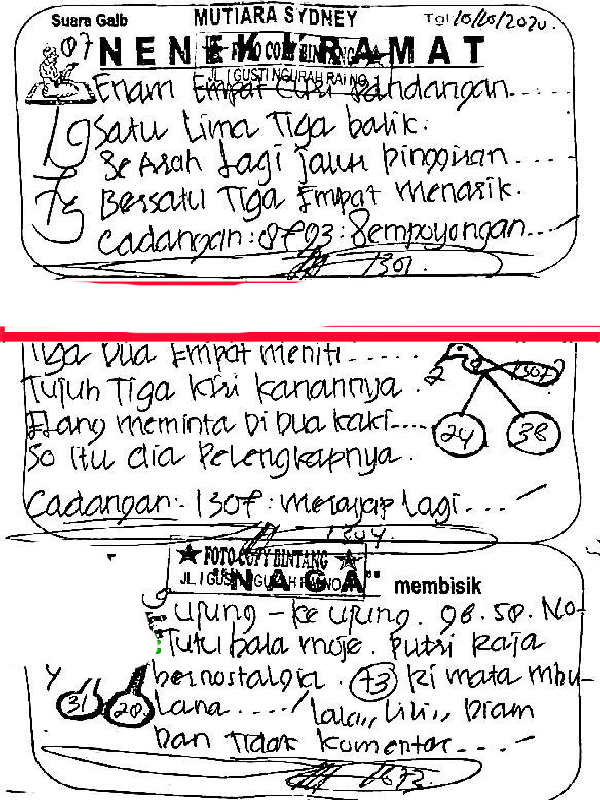 Suara Gaib MUTIARA SYDNEY Tgl 10/05/2020.
07 NENEK KRAMAT
FOTO COPY BINTANG
JL. I GUSTI NGURAH RAI NO
Enam Empat Curi Pandangan.....
Satu Lima Tiga balik.
Searah Lagi jauh pinggiran....
Bersatu Tiga Empat menarik.
Cadangan: 8793: Sempoyongan....
1301.
Tiga Dua Empat meniti.....
Tujuh Tiga Kiri Kanannya.
meminta Di Dua kaki.....
So Itu dia Pelengkapnya.
24 38
Cadangan:- 1307: Merayap Lagi...
1304.
FOTO COPY BINTANG
JL. I GUSTI NGURAH RAI NO
"NAGA" membisik
Ujung - ke ujung. 98. 50. No-
Tutu bala moje. Putri Raja
bernostalgia. +3 ki mata mbu-
31 20 Lana...../ lala,, Lili,, Diam
Dan Tidak Komentar...